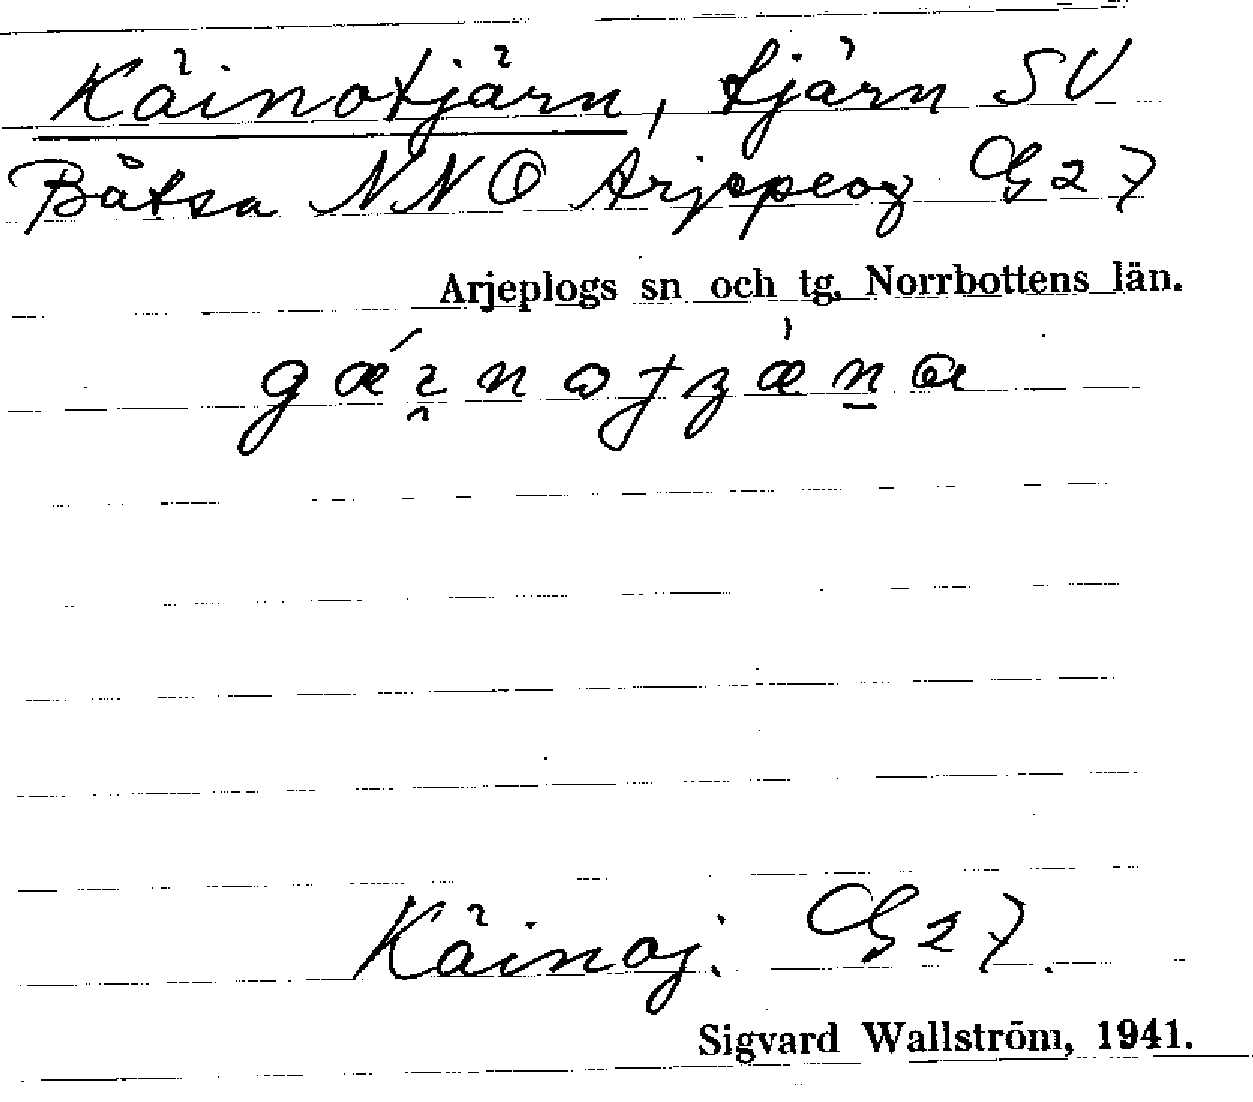 Käinotjärn, tjärn SV
Båtsa NNO Arjepeog G27
Arjeplogs sn och tg. Norrbottens län.
Käinoj. G27.
Sigvard Wallström, 1941.